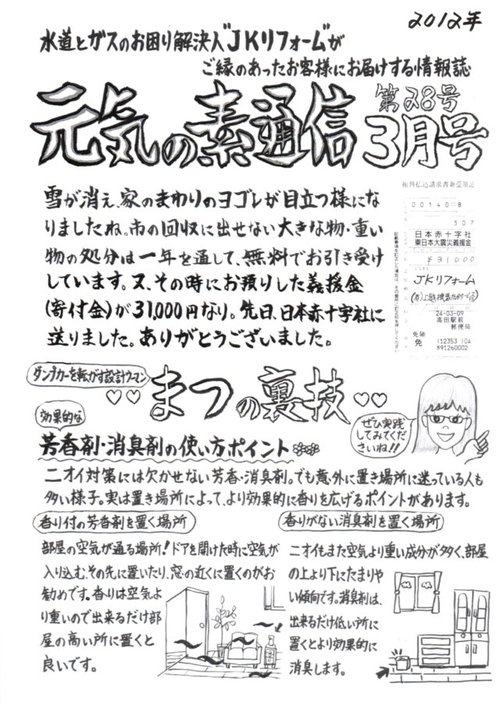 2012年
水道とガスのお困り解決人"JKリフォーム"が
ご縁のあったお客様にお届けする情報誌
元気の素通信
第28号
3月号
雪が消え、家のまわりのヨゴレが目立つ様にな
りましたね。市の回収に出せない大きな物・重い
物の処分は一年を通して、無料でお引き受け
しています。又、その時にお預りした義援金
(寄付金)が31,000円なり。先日、日本赤十字社に
送りました。ありがとうございました。
00140 8
507
日本赤十字社
東日本大震災義援金
¥31000
JKリフォーム
24-03-09
高田駅前
郵便局
免
(12353 104
991260002
ダンプカーを転がす設計ウーマン
♡♡まつの裏技♡♡
効果的な
芳香剤・消臭剤の使い方ポイント
ぜひ実践
してみてくだ
さいね!!
ニオイ対策には欠かせない芳香・消臭剤。でも意外に置き場所に迷っている人も
多い様子。実は置き場所によって、より効果的に香りを広げるポイントがあります。
香り付の芳香剤を置く場所
部屋の空気が通る場所!ドアを開けた時に空気が
入り込む、その先に置いたり、窓の近くに置くのがお
勧めです。香りは空気よ
り重いので出来るだけ部
屋の高い所に置くと
良いです。
香りがない消臭剤を置く場所
ニオイもまた空気より重い成分が多く、部屋
の上より下にたまりや
すい傾向です。消臭剤は、
出来るだけ低い所に
置くとより効果的に
消臭します。